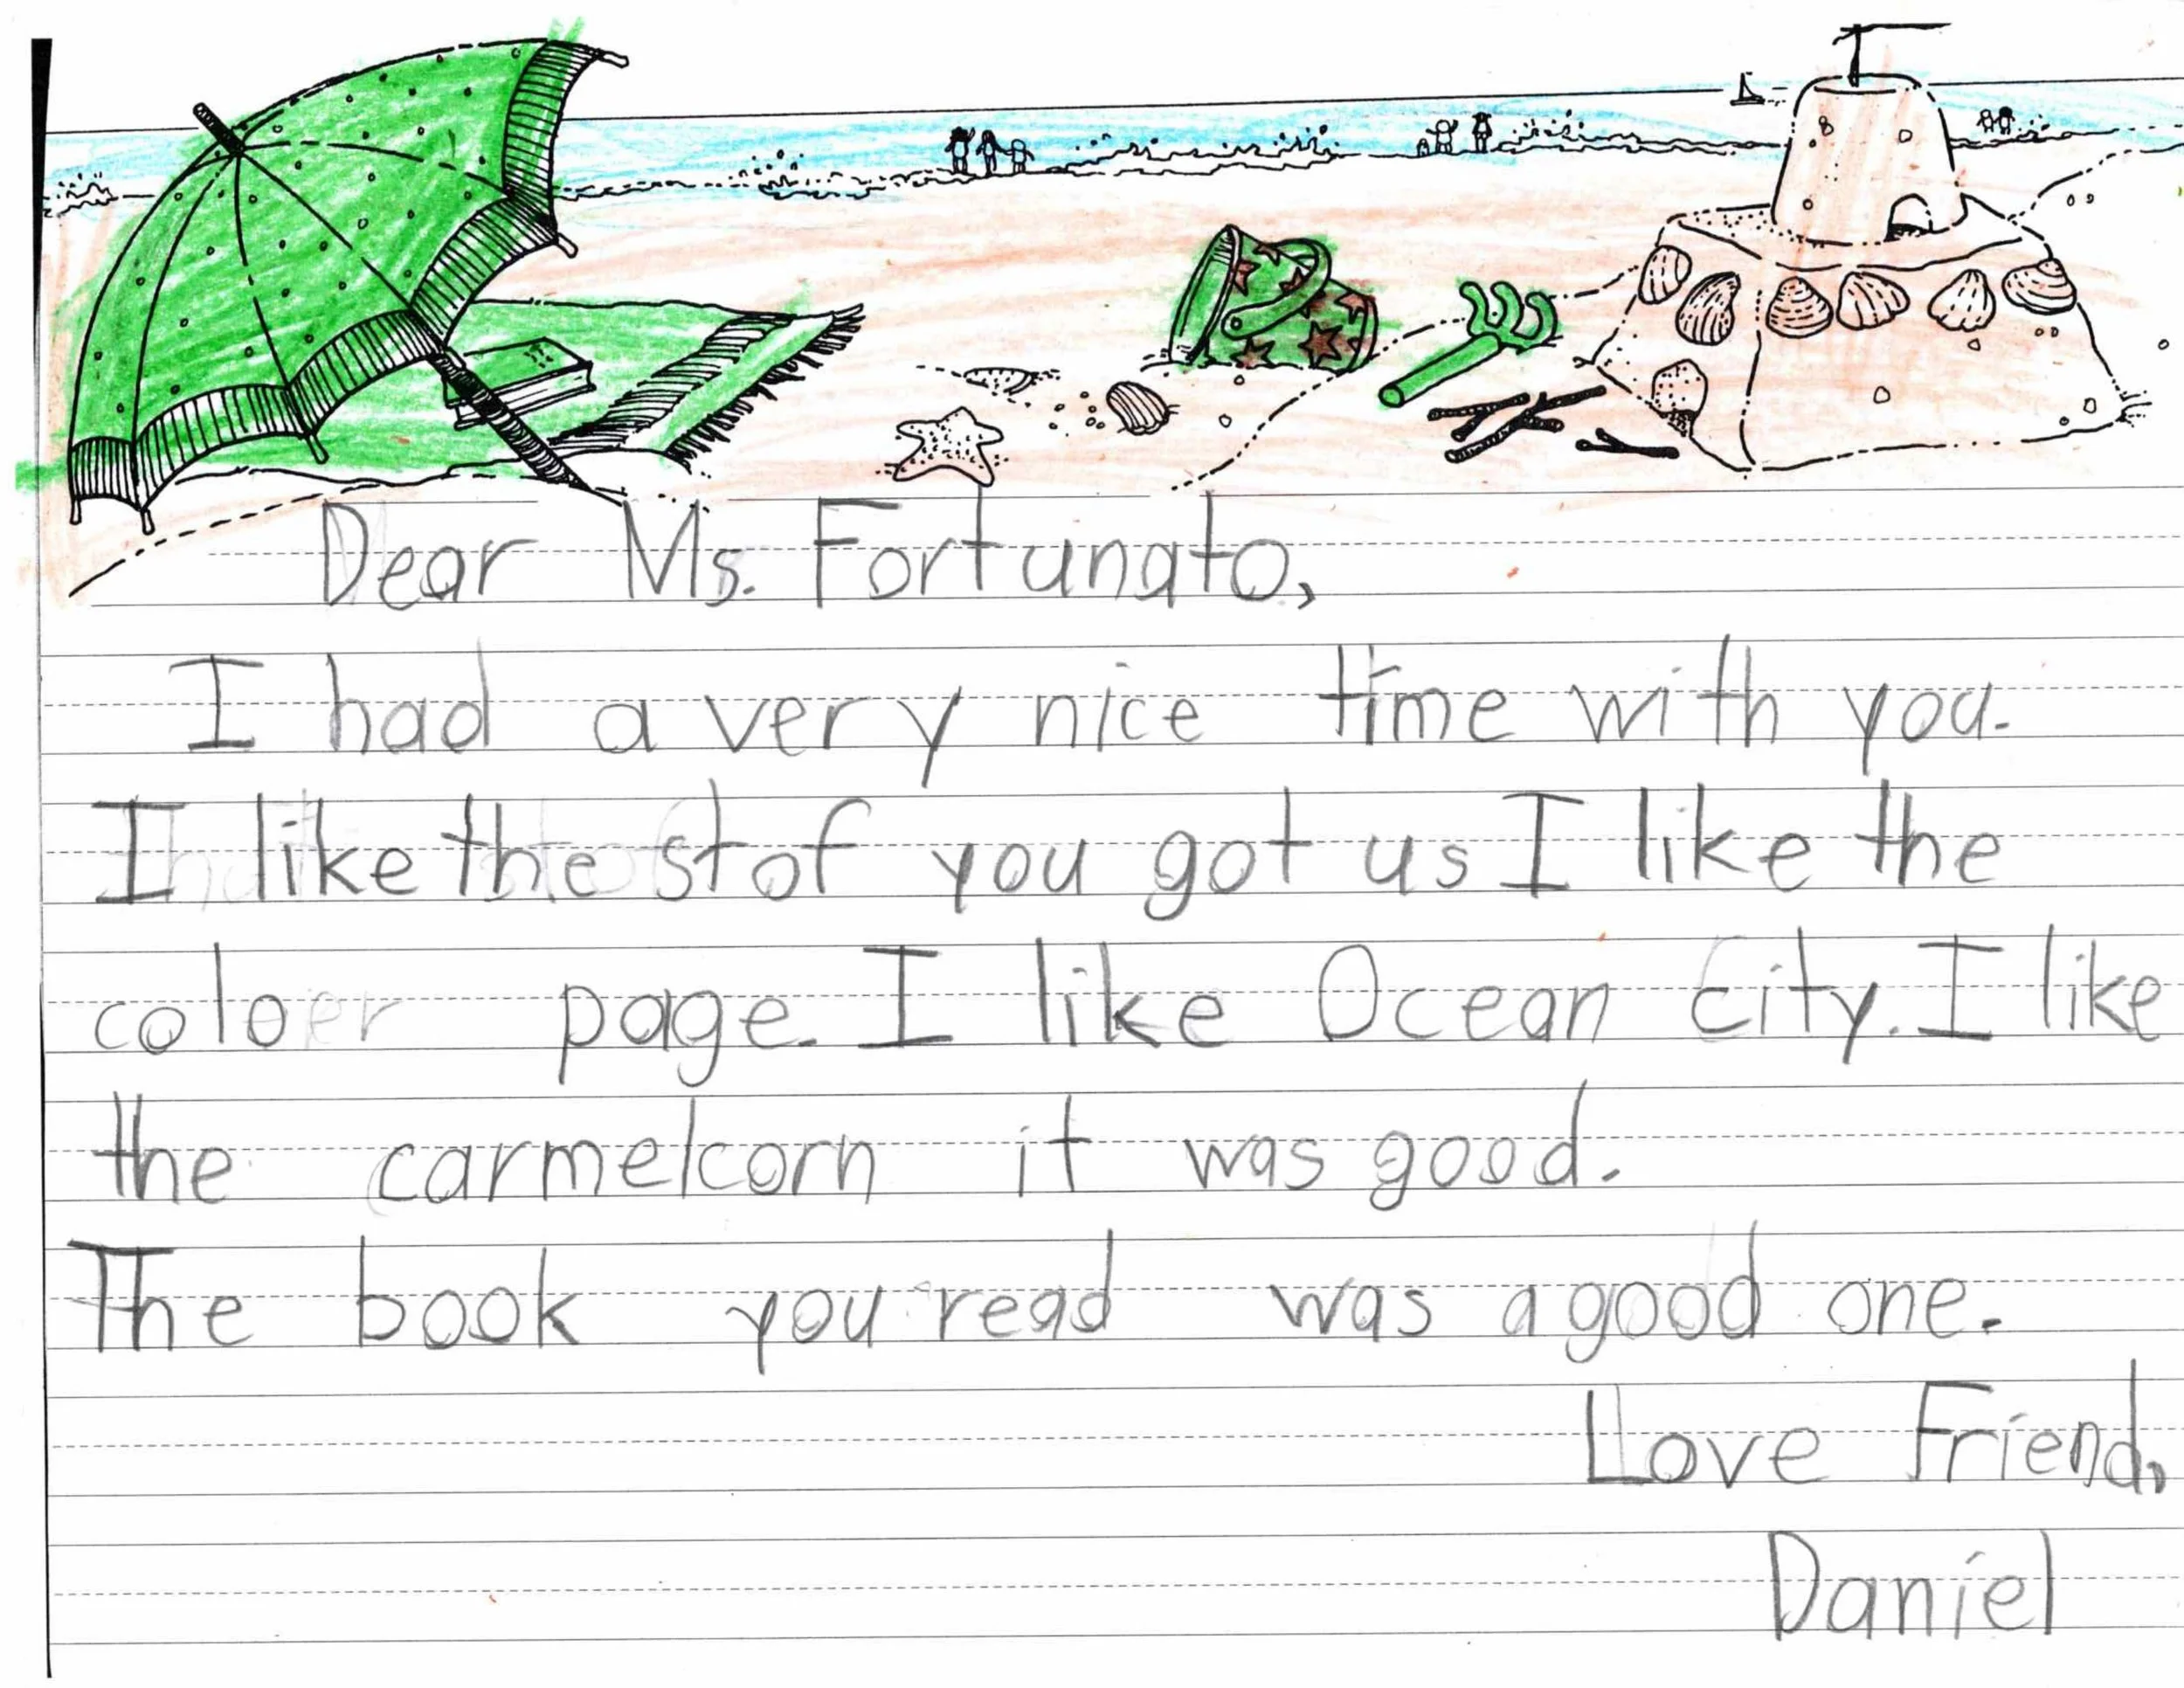 Dear Ms. Fortunato,
I had a very nice time with you.
I like the stof you got us I like the
coloer page. I like Ocean City. I like
the carmelcorn it was good.
The book you read was a good one.
Love Friend,
Daniel